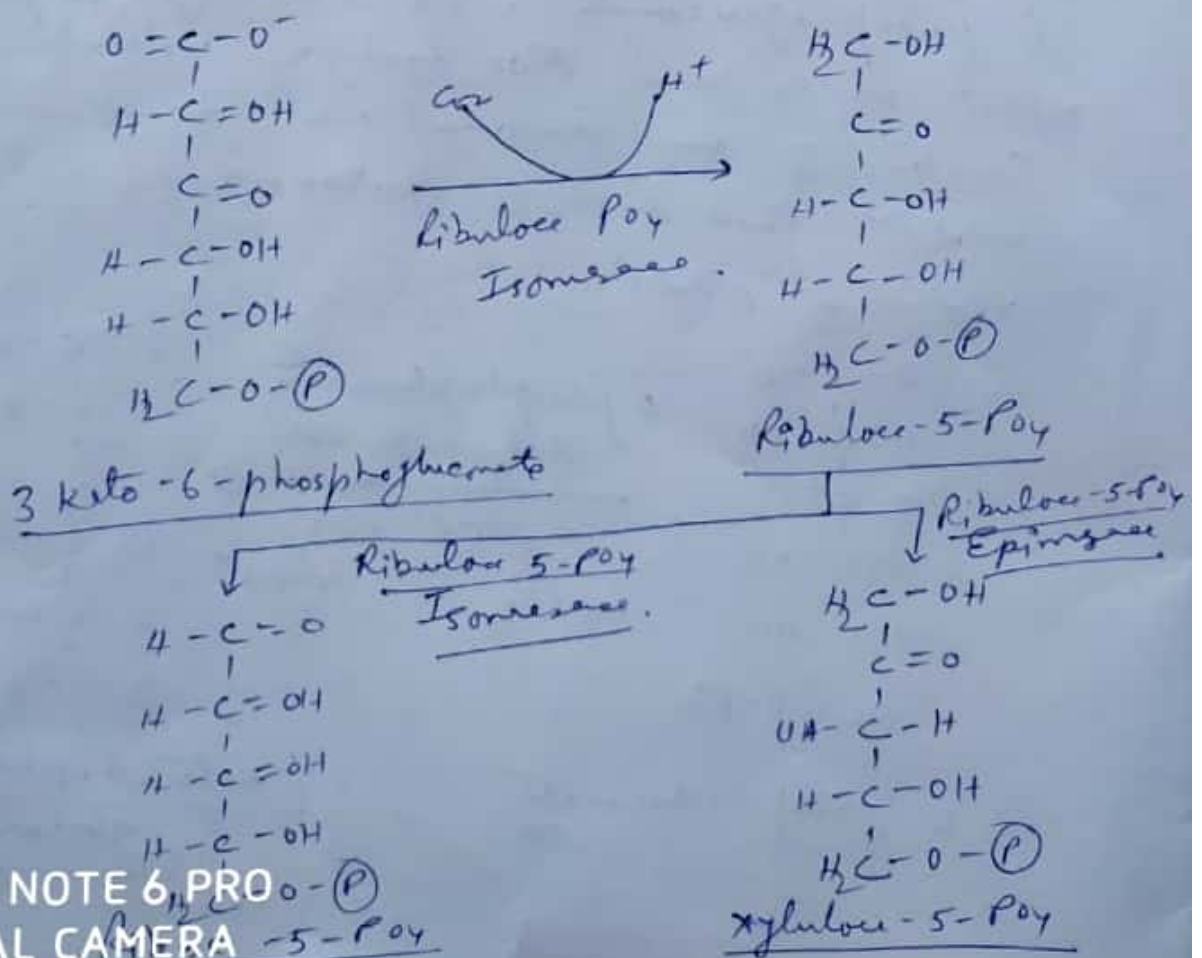 O = C - O⁻
H - C = OH
C = O
H - C - OH
H - C - OH
H₂C - O - Ⓟ
3 keto - 6 - phosphogluconate
H⁺
Ribulose PO4
Isomerase.
H₂C - OH
C = O
H - C - OH
H - C - OH
H₂C - O - Ⓟ
Ribulose - 5 - PO4
Ribulose 5-PO4
Isomerase.
Ribulose-5-PO4
Epimerase.
H - C = O
H - C = OH
H - C = OH
H - C - OH
H₂C - O - Ⓟ
-5-PO4
H₂C - OH
C = O
OH - C - H
H - C - OH
H₂C - O - Ⓟ
xylulose - 5 - PO4
NOTE 6 PRO
AL CAMERA